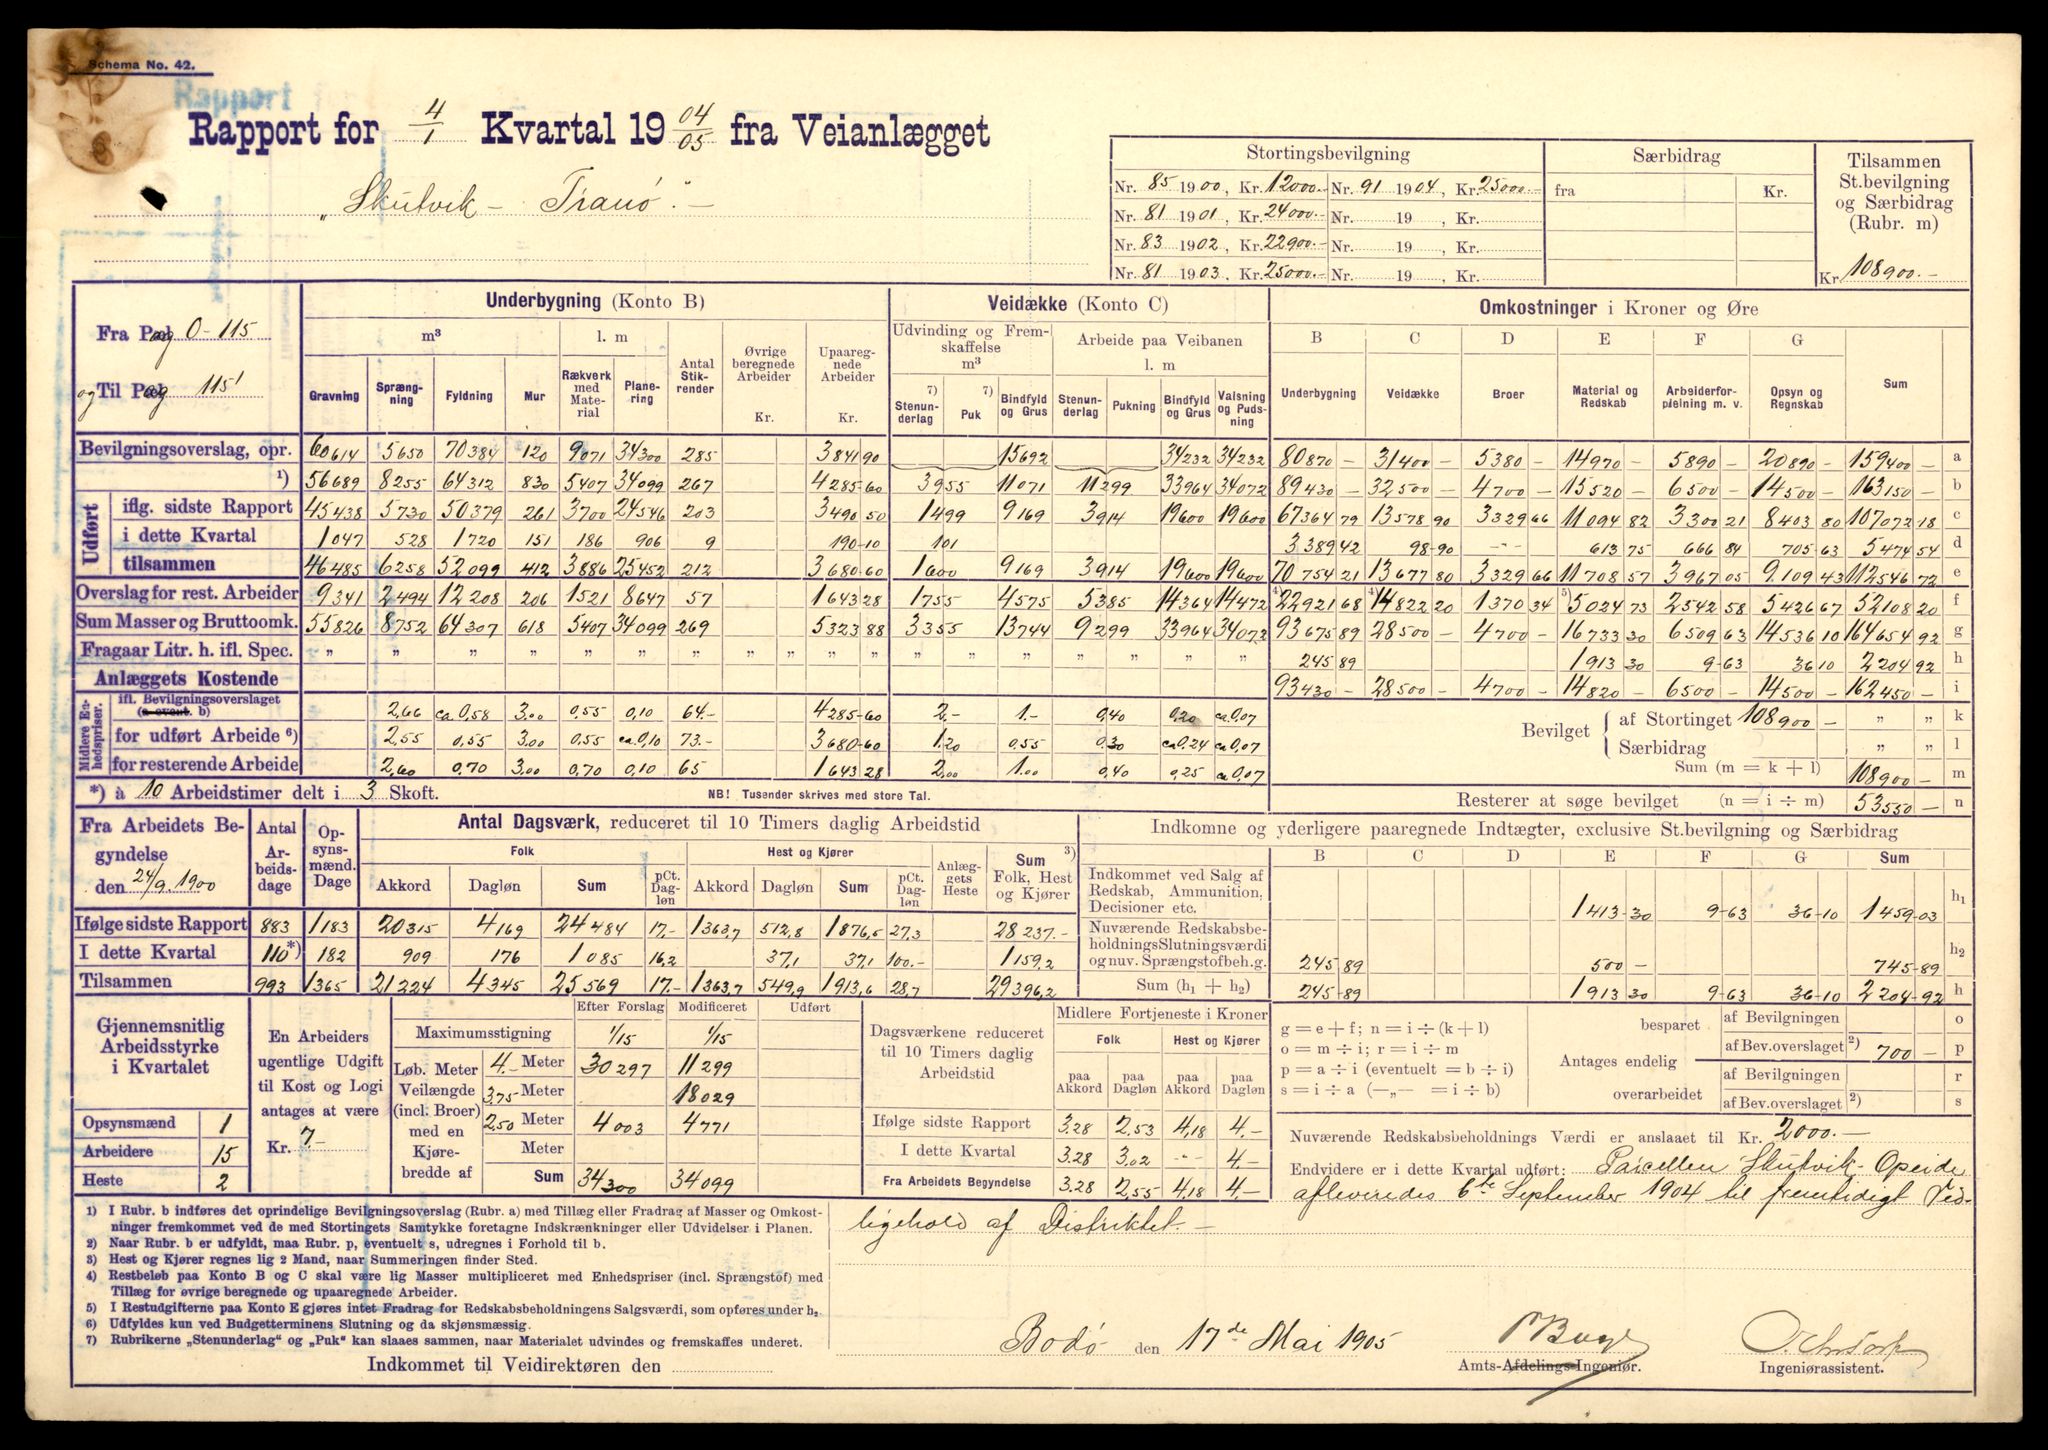 Schema No. 42.
Rapport
Rapport for 4/1 Kvartal 19 04/05 fra Veianlægget
„Skutvik – Tranö". –
Stortingsbevilgning | Særbidrag | Tilsammen St.bevilgning og Særbidrag (Rubr. m)
Nr. 85 1900, Kr. 12000.- Nr. 91 1904, Kr. 25000.- fra Kr.
Nr. 81 1901, Kr. 24000.- Nr. 19 , Kr.
Nr. 83 1902, Kr. 22900.- Nr. 19 , Kr.
Nr. 81 1903, Kr. 25000.- Nr. 19 , Kr. Kr 108900.-
Fra Pæg 0-115
og Til Pæg 115¹
Underbygning (Konto B) | Veidække (Konto C) | Omkostninger i Kroner og Øre
m³ | l. m | Antal Stikrender | Øvrige beregnede Arbeider Kr. | Upaaregnede Arbeider Kr. | Udvinding og Fremskaffelse m³ | Arbeide paa Veibanen l. m | B | C | D | E | F | G
Gravning | Sprængning | Fyldning | Mur | Rækverk med Materiale | Planering | 7) Stenunderlag | 7) Puk | Bindfyld og Grus | Stenunderlag | Pukning | Bindfyld og Grus | Valsning og Pudsning | Underbygning | Veidække | Broer | Material og Redskab | Arbeiderforpleining m. v. | Opsyn og Regnskab | Sum
Bevilgningsoverslag, opr. 60614 5650 70384 120 9071 34300 285 3841 90 15692 34232 34232 80870 – 31400 – 5380 – 14970 – 5890 – 20890 – 159400 – a
1) 56689 8255 64312 830 5407 34099 267 4285-60 3955 11071 11299 33964 34072 89430 – 32500 – 4700 – 15520 – 6500 – 14500 – 163150 – b
Udført
iflg. sidste Rapport 45438 5730 50379 261 3700 24546 203 3490 50 1499 9169 3914 19600 19600 67364 79 13578 90 3329 66 11094 82 3300 21 8403 80 107072 18 c
i dette Kvartal 1047 528 1720 151 186 906 9 190-10 101 3389 42 98-90 -"- 613 75 666 84 705 63 5474 54 d
tilsammen 46485 6258 52099 412 3886 25452 212 3680-60 1600 9169 3914 19600 19600 70754 21 13677 80 3329 66 11708 57 3967 05 9109 43 112546 72 e
Overslag for rest. Arbeider 9341 2494 12208 206 1521 8647 57 1643 28 1755 4575 5385 14364 14472 4) 22921 68 4) 14822 20 1370 34 5) 5024 73 2542 58 5426 67 52108 20 f
Sum Masser og Bruttoomk. 55826 8752 64307 618 5407 34099 269 5323 88 3355 13744 9299 33964 34072 93675 89 28500 – 4700 – 16733 30 6509 63 14536 10 164654 92 g
Fragaar Litr. h. ifl. Spec. „ „ „ „ „ „ „ „ „ „ „ „ „ „ „ „ „ 245 89 1913 30 9-63 36 10 2204 92 h
Anlæggets Kostende 93430 – 28500 – 4700 – 14820 – 6500 – 14500 – 162450 – i
Midlere Enhedspriser.
ifl. Bevilgningsoverslaget (a event. b) 2,66 ca 0,58 3,00 0,55 0,10 64.- 4285-60 2.- 1.- 0,40 0,20 ca 0,07
for udført Arbeide 6) 2,55 0,55 3,00 0,55 ca 0,10 73.- 3680-60 1,20 0,55 0,30 ca 0,24 ca 0,07
for resterende Arbeide 2,60 0,70 3,00 0,70 0,10 65 1643 28 2,00 1,00 0,40 0,25 ca 0,07
Bevilget af Stortinget 108900 – „ „ k
Særbidrag „ „ l
Sum (m = k + l) 108900 – m
Resterer at søge bevilget (n = i ÷ m) 53550 – n
*) à 10 Arbeidstimer delt i 3 Skoft. NB! Tusender skrives med store Tal.
Fra Arbeidets Begyndelse den 24/9 1900
Antal Arbeidsdage | Opsynsmænd. Dage | Antal Dagsværk, reduceret til 10 Timers daglig Arbeidstid
Folk | Hest og Kjører | Anlæggets Heste | Sum 3) Folk, Hest og Kjører
Akkord | Dagløn | Sum | pCt. Dagløn | Akkord | Dagløn | Sum | pCt. Dagløn
Ifølge sidste Rapport 883 1183 20315 4169 24484 17.- 1363,7 512,8 1876,5 27,3 28237.-
I dette Kvartal 110*) 182 909 176 1085 16,2 37,1 37,1 100.- 1159,2
Tilsammen 993 1365 21224 4345 25569 17.- 1363,7 549,9 1913,6 28,7 29396,2
Indkomne og yderligere paaregnede Indtægter, exclusive St.bevilgning og Særbidrag
B C D E F G Sum
Indkommet ved Salg af Redskab, Ammunition, Decisioner etc. 1413-30 9-63 36-10 1459-03 h₁
Nuværende Redskabsbeholdnings Slutningsværdi og nuv. Sprængstofbeh.g. 245 89 500 – 745-89 h₂
Sum (h₁ + h₂) 245-89 1913 30 9-63 36-10 2204-92 h
Gjennemsnitlig Arbeidsstyrke i Kvartalet
Opsynsmænd 1
Arbeidere 15
Heste 2
En Arbeiders ugentlige Udgift til Kost og Logi antages at være Kr. 7.-
Efter Forslag | Modificeret | Udført
Maximumsstigning 1/15 1/15
Løb. Meter Veilængde (incl. Broer) med en Kjørebredde af
4.- Meter 30297 11299
3,75 Meter 18029
2,50 Meter 4003 4771
Meter
Sum 34300 34099
Dagsværkene reduceret til 10 Timers daglig Arbeidstid
Midlere Fortjeneste i Kroner
Folk | Hest og Kjører
paa Akkord | paa Dagløn | paa Akkord | paa Dagløn
Ifølge sidste Rapport 3.28 2,53 4,18 4.-
I dette Kvartal 3.28 3,02 -"- 4.-
Fra Arbeidets Begyndelse 3.28 2,55 4,18 4.-
g = e + f; n = i ÷ (k + l)
o = m ÷ i; r = i ÷ m
p = a ÷ i (eventuelt = b ÷ i)
s = i ÷ a ( —„— = i ÷ b)
Antages endelig
besparet af Bevilgningen o
af Bev.overslaget 2) 700 – p
overarbeidet af Bevilgningen r
af Bev.overslaget 2) s
Nuværende Redskabsbeholdnings Værdi er anslaaet til Kr. 2000.–
Endvidere er i dette Kvartal udført: Parcellen Skutvik-Opeide
afleveredes 6te September 1904 til fremtidigt Ved-
ligehold af Distriktet. –
1) I Rubr. b indføres det oprindelige Bevilgningsoverslag (Rubr. a) med Tillæg eller Fradrag af Masser og Omkostninger fremkommet ved de med Stortingets Samtykke foretagne Indskrænkninger eller Udvidelser i Planen.
2) Naar Rubr. b er udfyldt, maa Rubr. p, eventuelt s, udregnes i Forhold til b.
3) Hest og Kjører regnes lig 2 Mand, naar Summeringen finder Sted.
4) Restbeløb paa Konto B og C skal være lig Masser multipliceret med Enhedspriser (incl. Sprængstof) med Tillæg for øvrige beregnede og upaaregnede Arbeider.
5) I Restudgifterne paa Konto E gjøres intet Fradrag for Redskabsbeholdningens Salgsværdi, som opføres under h₂.
6) Udfyldes kun ved Budgetterminens Slutning og da skjønsmæssig.
7) Rubrikerne „Stenunderlag" og „Puk" kan slaaes sammen, naar Materialet udvindes og fremskaffes underet.
Indkommet til Veidirektøren den
Bodö den 17de Mai 1905
Amts-Afdelings-Ingeniør.
Ingeniørassistent.